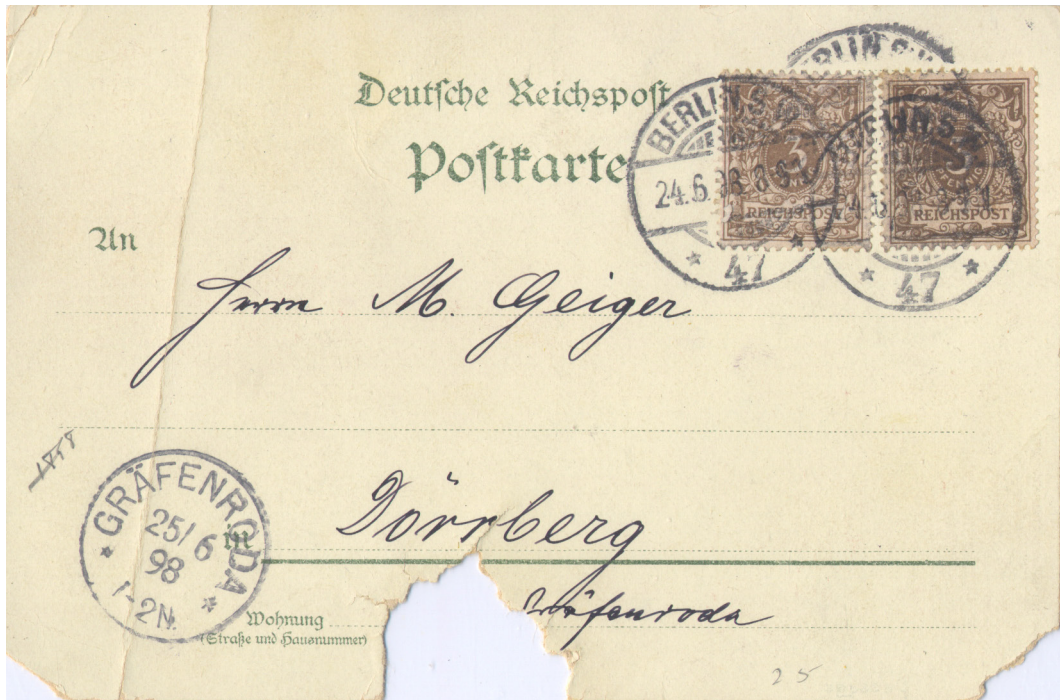 Deutsche Reichspost
Postkarte
An
BERLIN S.W.
BERLIN S.W.
24.6.98. 8-9
* 47 *
3
REICHSPOST
BERLIN S.W.
* 47 *
3
REICHSPOST
Herrn M. Geiger
Dörrberg
in
Gräfenroda
GRÄFENRODA
25/6
98
1-2N.
Wohnung
(Straße und Hausnummer)
25